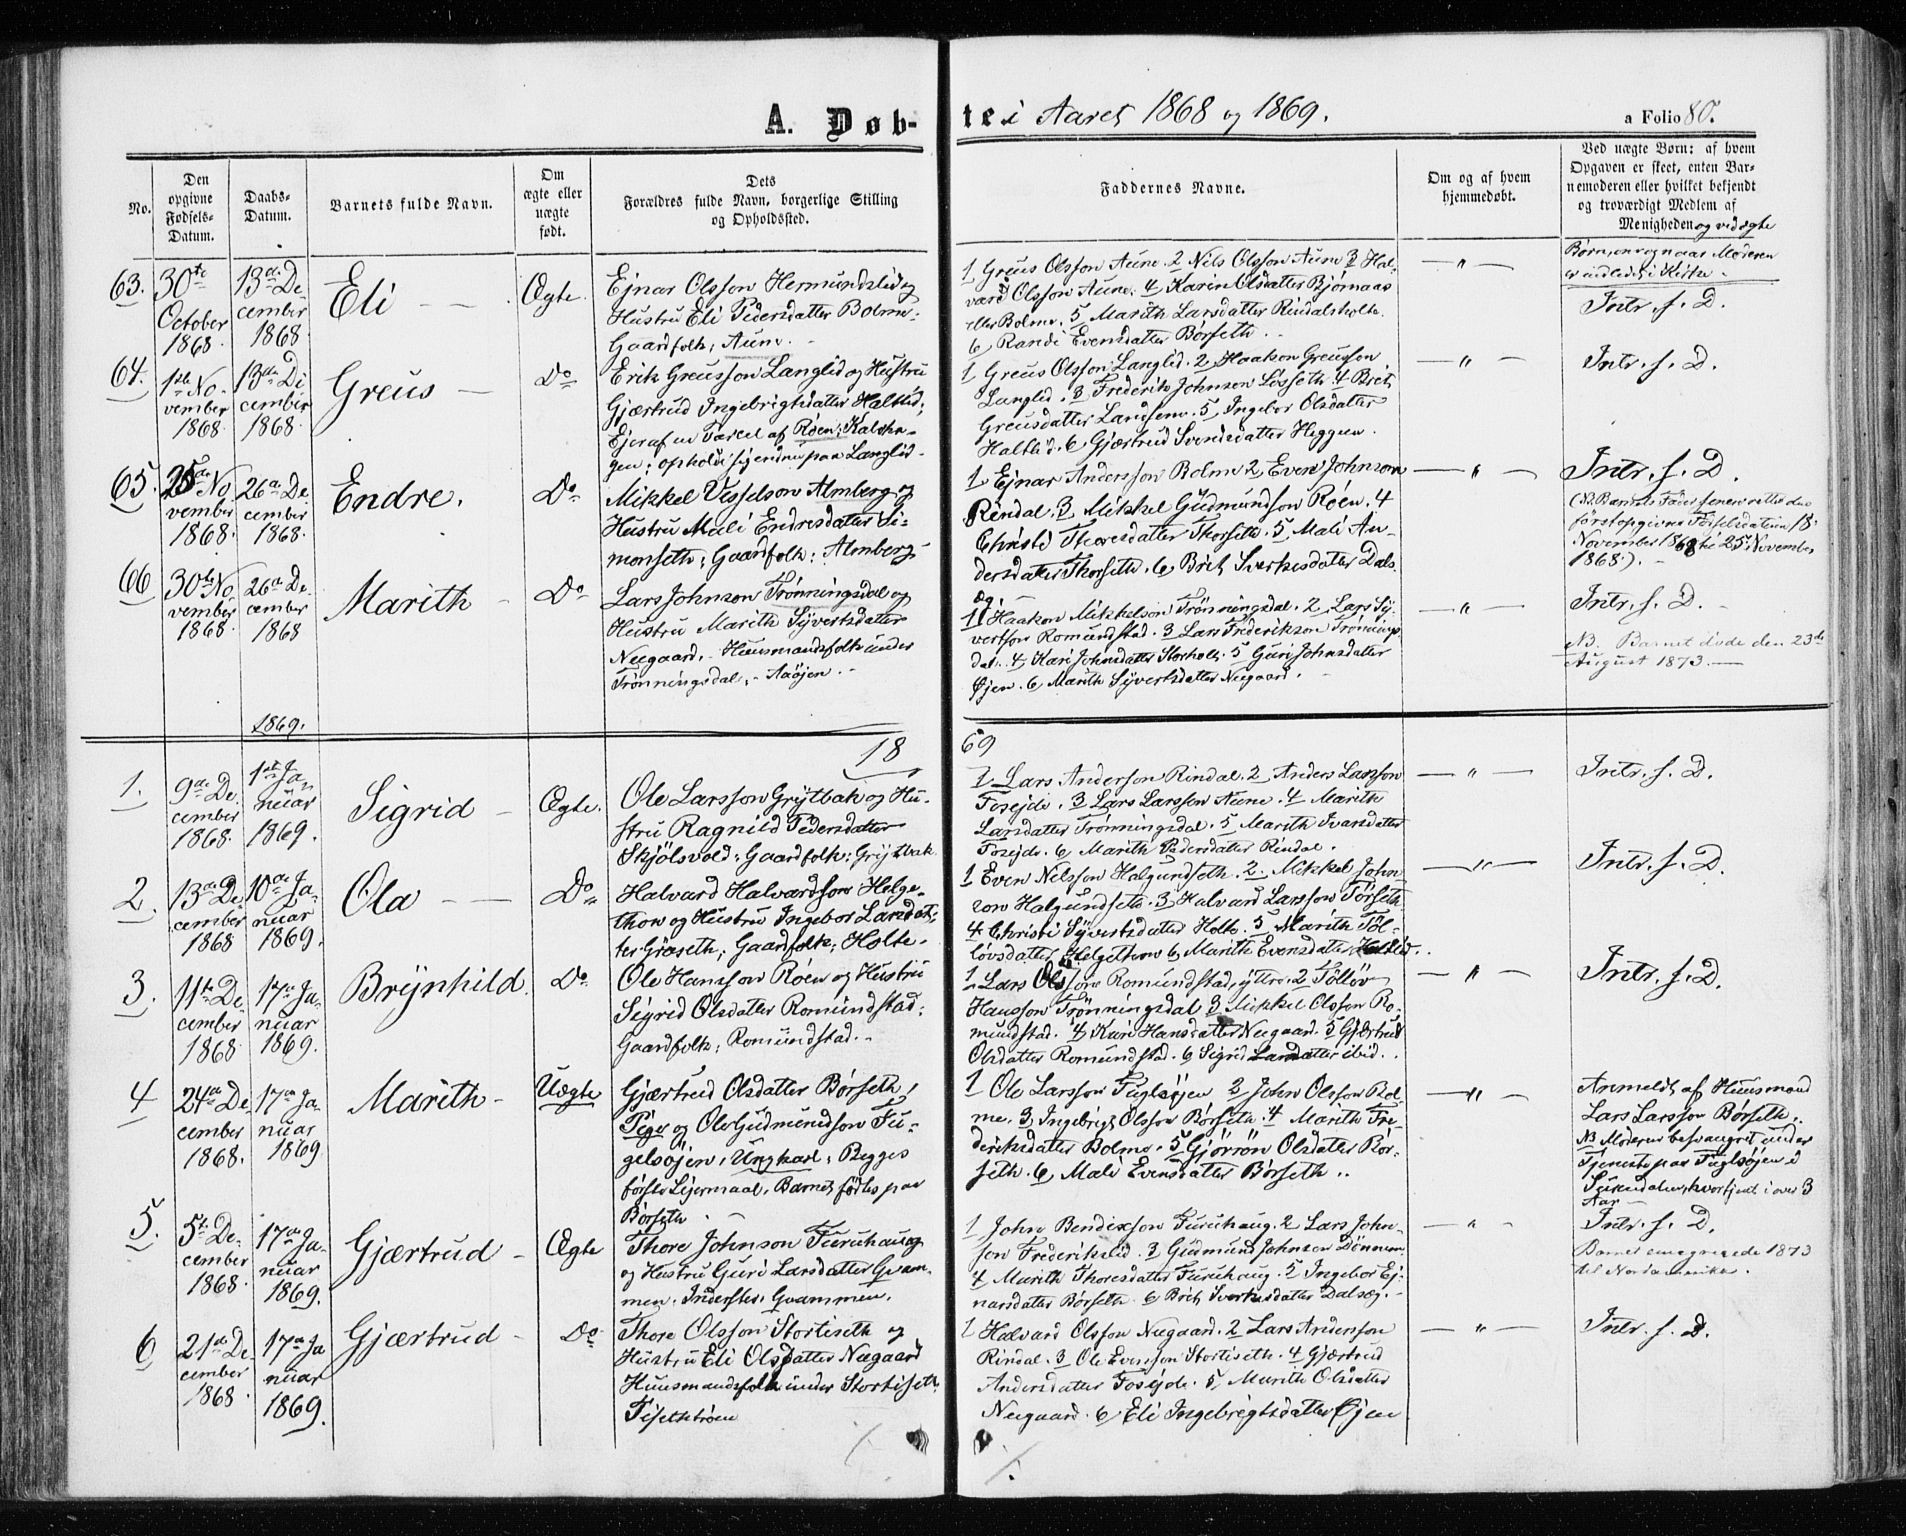 A. Døb-
te i Aaret 1868 og 1869.
a Folio 80.
No.
Den
opgivne
Fødsels-
Datum.
Daabs-
Datum.
Barnets fulde Navn.
Om
ægte eller
uægte
født.
Dets
Forældres fulde Navn, borgerlige Stilling
og Opholdssted.
Faddernes Navne.
Om og af hvem
hjemmedøbt.
Ved uægte Børn: af hvem
Opgaven er skeet, enten Bar-
nemoderen eller hvilket bekjendt
og troværdigt Medlem af
Menigheden og ved ægte
Børn, om og naar Moderen
er indledet i Kirke.
63.
30te
October
1868.
13de De-
cember
1868.
Eli
Ægte.
Ejnar Olsson Hermundslid og
Hustru Eli Pedersdatter Bolme.
Gaardfolk, Aune.
1 Greus Olsson Aune. 2 Nils Olsson Aune 3 Hal-
vard Olsson Aune. 4 Karen Olsdatter Bjørnaas
eller Bolme. 5 Marith Larsdatter Rindalsholte.
6 Randi Evensdatter Børseth.
— " —
Intr. s. D.
64.
1ste No-
vember
1868
13de De
cember
1868
Greus
Do
Erik Greusson Langlid og Hustru
Gjærtrud Ingebrigtsdatter Haltlid;
Ejer af en Parcel af Røen:
gen; opholde sig endnu paa Langlid
1 Greus Olsson Langlid. 2 Haakon Greusson
Langlid. 3 Frederik Johnson Løsseth 4 Brit
Greusdatter Landsem. 5 Ingebor Olsdatter
Haltlid. 6 Gjærtrud Svendsdatter Heggem.
— " —
Intr. s. D.
65.
25de No
vember
1868.
26de De
cember
1868.
Endre.
Do
Mikkel Visselson Almberg og
Hustru Mali Endresdatter Si-
monseth; Gaardfolk: Almberg
1 Ejnar Andersson Bolme 2 Even Johnson
Rindal. 3 Mikkel Gudmundson Røen. 4
Christi Thoresdatter Thorseth. 5 Mali An-
dersdatter Thorseth. 6 Brit Sverkesdatter Dals-
æg.
— " —
Intr. s. D.
(NB. Barnets Fader senere rettede
førstopgivne Fødselsdatum 18.
November 1868 til 25de November
1868).
66
30te No
vember
1868.
26de De-
cember
1868
Marith
Do
Lars Johnson Trønningsdal og
Hustru Marith Syvertsdatter
Neegaard. Huusmandsfolk under
Trønningsdal, - Aaøjen.
1 Haakon Mikkelson Trønningsdal. 2 Lars Sy-
vertson Romundstad. 3 Lars Frederikson Trønnings-
dal. 4 Kari Johnsdatter Storholt. 5 Guri Johnsdatter
Øjen. 6 Marith Syvertsdatter Neegaard.
— " —
Intr. s. D.
NB. Barnet døde den 23de
August 1873.
1869.
18
69
1.
9de De
cember
1868.
1ste Ja-
nuar
1869.
Sigrid
Ægte.
Ole Larsson Grytbak og Hu-
stru Ragnild Pedersdatter
Skjølsvold: Gaardfolk: Grytbak
1 Lars Anderson Rindal. 2 Anders Larsson
Fosejde. 3 Lars Larsson Aune. 4 Marith
Larsdatter Trønningsdal. 5 Marith Ivarsdatter
Fosejde. 6 Marith Pedersdatter Rindal.
— " —
Intr. s. D.
2.
13de De
cember
1868
10de Ja-
nuar
1869.
Ola
Do
Halvard Halvardson Helge-
thon og Hustru Ingebor Larsdat-
ter Græseth; Gaardfolk; Holte
1 Even Nilsson Halgundseth. 2. Mikkel John
son Halgundseth. 3 Halvard Larsson Tørseth
4 Christi Syvertsdatter Holte. 5 Marith Tøl-
løvsdatter Helgethon 6 Marith Evensdatter Haltlid.
— " —
Intr. s. D.
3.
11te De
cember
1868
17de Ja-
nuar
1869.
Brynhild
Do
Ole Hansson Røen og Hustru
Sigrid Olsdatter Romundstad;
Gaardfolk; Romundstad.
1 Lars Olsson Romundstad, yttre. 2 Tølløv
Hansson Trønningsdal 3 Mikkel Olsson Ro-
mundstad. 4 Kari Hansdatter Neegaard. 5 Gjærtrud
Olsdatter Romundstad. 6 Sigrid Larsdatter ibid.
— " —
Intr. s. D.
4
24de De
cember
1868.
17de Ja-
nuar
1869
Marith
Uægte
Gjærtrud Olsdatter Børseth,
Pige og Ole Gudmundson Fu-
gelsøjen, Ungkarl; Begges
første Lejermaal. Barnet fødtes paa
Børseth.
1 Ole Larsson Fuglsøjen 2 John Olsson Bol-
me. 3 Ingebrigt Olsson Børseth. 4 Marith Fre-
deriksdatter Bolme. 5 Gjørøn Olsdatter Bør-
seth. 6 Mali Evensdatter Børseth.
— " —
Anmeldt af Huusmand
Lars Larsson Børseth.
NB Moderen besvangret under
Tjeneste paa Fuglsøjen i
Surendalen, hvor tjent i over 3
Aar
5.
5te De-
cember
1868
17de Ja-
nuar
1869.
Gjærtrud
Ægte
Thore Johnson Furuhaug
og Hustru Guri Larsdatter Gvam-
men. Inderster, Gvammen.
1 John Bendixson Furuhaug. 2 Lars John-
son Frederikslid. 3 Gudmund Johnson Dønnem.
4 Marith Thoresdatter Furuhaug. 5 Ingebor Ej-
narsdatter Børseth. 6 Brit Sverkesdatter Dalsæg.
— " —
Intr. s. D.
Barnet emigrerede 1873
til Nordamerika.
6
21de De
cember
1868
17de Ja
nuar
1869.
Gjærtrud
Do
Thore Olsson Stortiseth og
Hustru Eli Olsdatter Neegaard
Huusmandsfolk under Stortiseth,
1 Halvard Olsson Neegaard. 2 Lars Anderson
Rindal. 3 Ole Evenson Stortiseth. 4 Gjærtrud
Andersdatter Fosejde. 5 Marith Olsdatter
Neegaard. 6 Eli Ingebrigtsdatter Øjen
— " —
Intr. s. D.